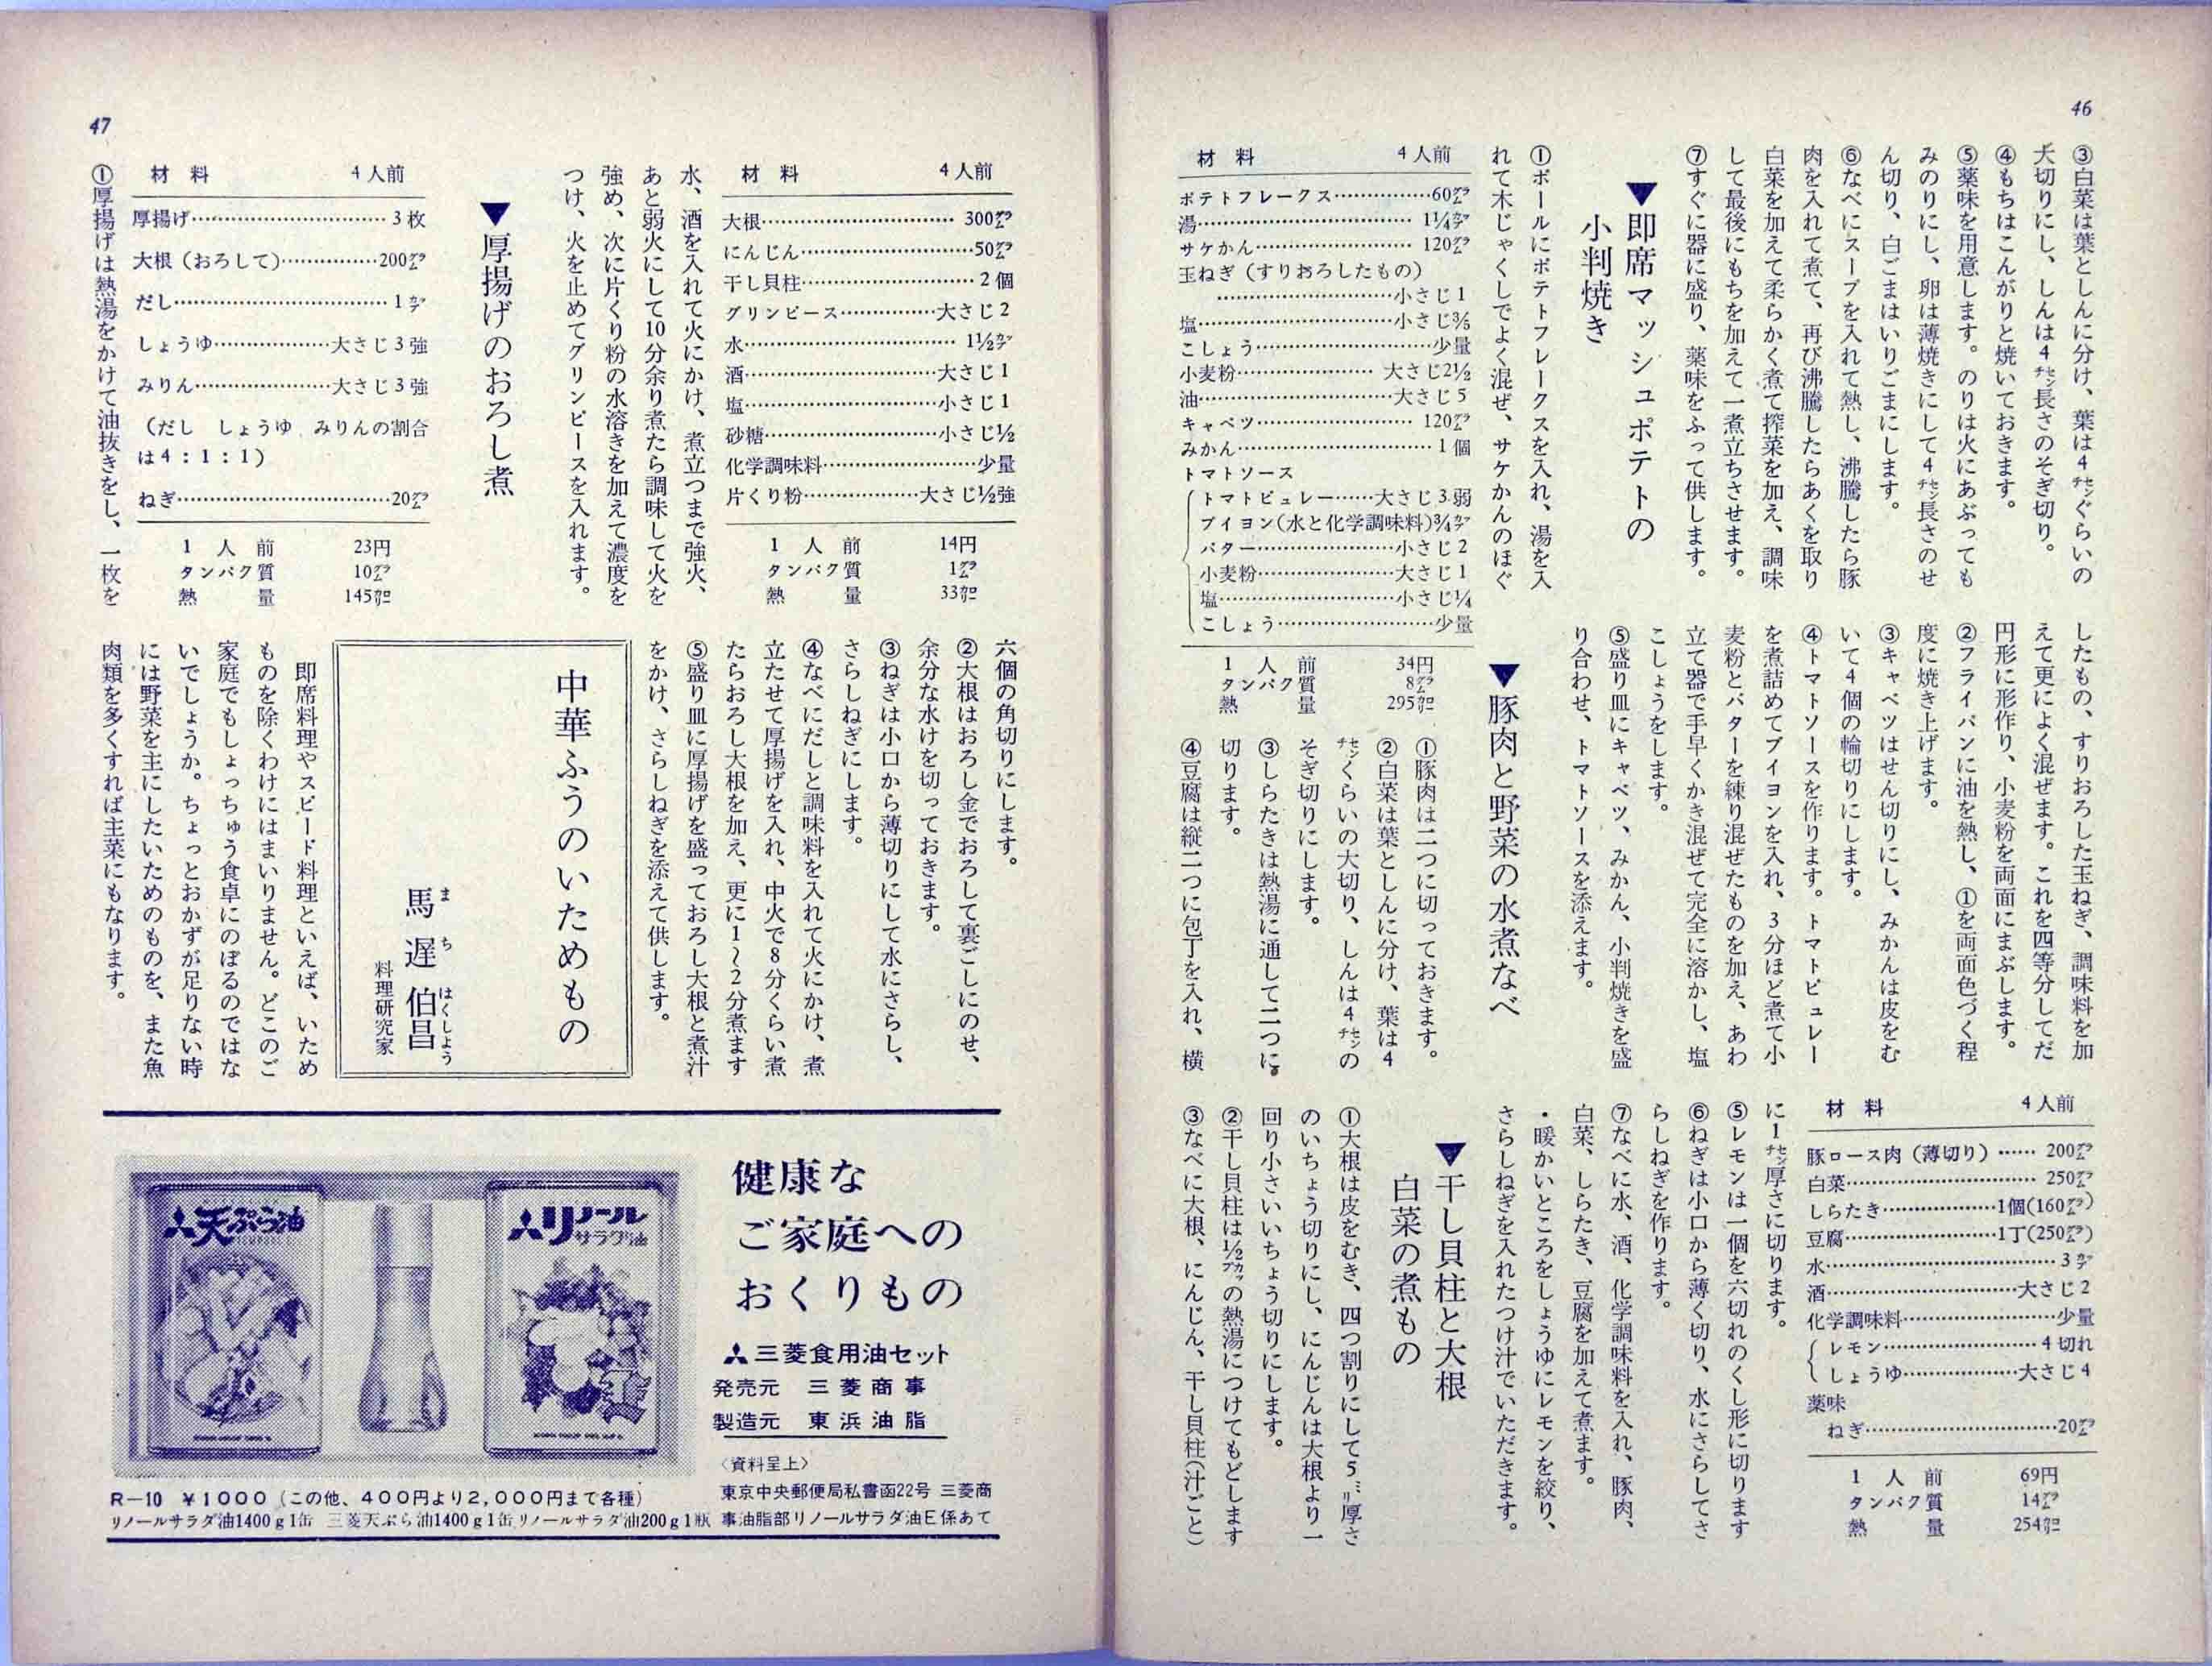 46
③白菜は葉としんに分け、葉は4㌢ぐらいの
大切りにし、しんは4㌢長さのそぎ切り。
④もちはこんがりと焼いておきます。
⑤薬味を用意します。のりは火にあぶっても
みのりにし、卵は薄焼きにして4㌢長さのせ
ん切り、白ごまはいりごまにします。
⑥なべにスープを入れて熱し、沸騰したら豚
肉を入れて煮て、再び沸騰したらあくを取り
白菜を加えて柔らかく煮て搾菜を加え、調味
して最後にもちを加えて一煮立ちさせます。
⑦すぐに器に盛り、薬味をふって供します。
▼即席マッシュポテトの
小判焼き
①ボールにポテトフレークスを入れ、湯を入
れて木じゃくしでよく混ぜ、サケかんのほぐ
材料 4人前
ポテトフレークス……………60㌘
湯……………1¼㌍
サケかん……………120㌘
玉ねぎ（すりおろしたもの）
……………小さじ1
塩……………小さじ⅗
こしょう……………少量
小麦粉……………大さじ2½
油……………大さじ5
キャベツ……………120㌘
みかん……………1個
トマトソース
トマトピュレー……大さじ3弱
ブイヨン(水と化学調味料)¾㌍
バター……………小さじ2
小麦粉……………大さじ1
塩……………小さじ¼
こしょう……………少量
1人前 34円
タンパク質 8㌘
熱量 295㌍
したもの、すりおろした玉ねぎ、調味料を加
えて更によく混ぜます。これを四等分してだ
円形に形作り、小麦粉を両面にまぶします。
②フライパンに油を熱し、①を両面色づく程
度に焼き上げます。
③キャベツはせん切りにし、みかんは皮をむ
いて4個の輪切りにします。
④トマトソースを作ります。トマトピュレー
を煮詰めてブイヨンを入れ、3分ほど煮て小
麦粉とバターを練り混ぜたものを加え、あわ
立て器で手早くかき混ぜて完全に溶かし、塩
こしょうをします。
⑤盛り皿にキャベツ、みかん、小判焼きを盛
り合わせ、トマトソースを添えます。
▼豚肉と野菜の水煮なべ
①豚肉は二つに切っておきます。
②白菜は葉としんに分け、葉は4
㌢くらいの大切り、しんは4㌢の
そぎ切りにします。
③しらたきは熱湯に通して二つに
切ります。
④豆腐は縦二つに包丁を入れ、横
材料 4人前
豚ロース肉（薄切り）……200㌘
白菜……………250㌘
しらたき……………1個(160㌘)
豆腐……………1丁(250㌘)
水……………3㌍
酒……………大さじ2
化学調味料……………少量
レモン……………4切れ
しょうゆ……………大さじ4
薬味
ねぎ……………20㌘
1人前 69円
タンパク質 14㌘
熱量 254㌍
に1㌢厚さに切ります。
⑤レモンは一個を六切れのくし形に切ります
⑥ねぎは小口から薄く切り、水にさらしてさ
らしねぎを作ります。
⑦なべに水、酒、化学調味料を入れ、豚肉、
白菜、しらたき、豆腐を加えて煮ます。
・暖かいところをしょうゆにレモンを絞り、
さらしねぎを入れたつけ汁でいただきます。
▼干し貝柱と大根
白菜の煮もの
①大根は皮をむき、四つ割りにして5㍉厚さ
のいちょう切りにし、にんじんは大根より一
回り小さいいちょう切りにします。
②干し貝柱は½㌍の熱湯につけてもどします
③なべに大根、にんじん、干し貝柱（汁ごと）
47
材料 4人前
大根……………300㌘
にんじん……………50㌘
干し貝柱……………2個
グリンピース……………大さじ2
水……………1½㌍
酒……………大さじ1
塩……………小さじ1
砂糖……………小さじ½
化学調味料……………少量
片くり粉……………大さじ½強
1人前 14円
タンパク質 1㌘
熱量 33㌍
水、酒を入れて火にかけ、煮立つまで強火、
あと弱火にして10分余り煮たら調味して火を
強め、次に片くり粉の水溶きを加えて濃度を
つけ、火を止めてグリンピースを入れます。
▼厚揚げのおろし煮
材料 4人前
厚揚げ……………3枚
大根（おろして）……………200㌘
だし……………1㌍
しょうゆ……………大さじ3強
みりん……………大さじ3強
（だし しょうゆ みりんの割合
は4：1：1）
ねぎ……………20㌘
1人前 23円
タンパク質 10㌘
熱量 145㌍
①厚揚げは熱湯をかけて油抜きをし、一枚を
六個の角切りにします。
②大根はおろし金でおろして裏ごしにのせ、
余分な水けを切っておきます。
③ねぎは小口から薄切りにして水にさらし、
さらしねぎにします。
④なべにだしと調味料を入れて火にかけ、煮
立たせて厚揚げを入れ、中火で8分くらい煮
たらおろし大根を加え、更に1〜2分煮ます
⑤盛り皿に厚揚げを盛っておろし大根と煮汁
をかけ、さらしねぎを添えて供します。
中華ふうのいためもの
馬遅伯昌
まちはくしょう
料理研究家
即席料理やスピード料理といえば、いため
ものを除くわけにはまいりません。どこのご
家庭でもしょっちゅう食卓にのぼるのではな
いでしょうか。ちょっとおかずが足りない時
には野菜を主にしたいためのものを、また魚
肉類を多くすれば主菜にもなります。
健康な
ご家庭への
おくりもの
三菱食用油セット
発売元 三菱商事
製造元 東浜油脂
〈資料呈上〉
東京中央郵便局私書函22号 三菱商
事油脂部リノールサラダ油E係あて
天ぷら油
リノール
サラダ油
R－10 ￥1000（この他、400円より2,000円まで各種）
リノールサラダ油1400g1缶 三菱天ぷら油1400g1缶 リノールサラダ油200g1瓶